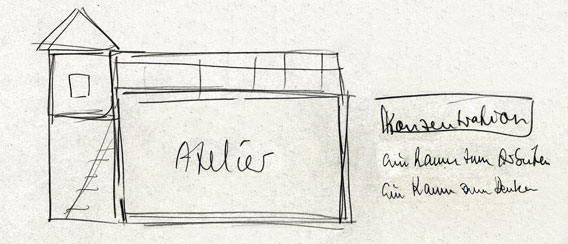 Atelier
Konzentration
ein Raum zum Arbeiten
ein Raum zum Denken